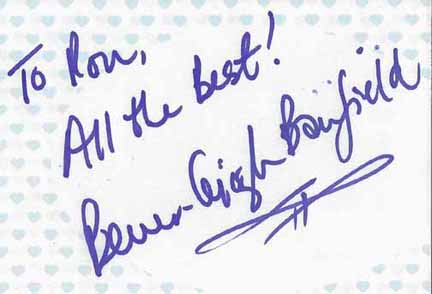 To Ron,
All the Best!
Bever-Leigh Banfield